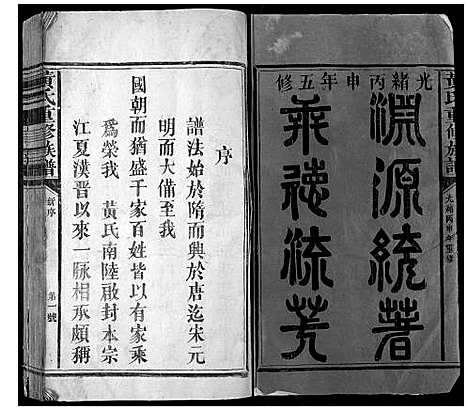 黃氏重修族譜
光緒丙申年重修
光緒丙申年五修
淵源統著
奕德流芳
序
譜法始於隋而興於唐迄宋元
明而大備至我
國朝而猶盛千家百姓皆以有家乘
為榮我 黃氏南陸啟封本宗
江夏漢晉以來一脉相承頗稱
黃氏重修族譜
新序
第一號